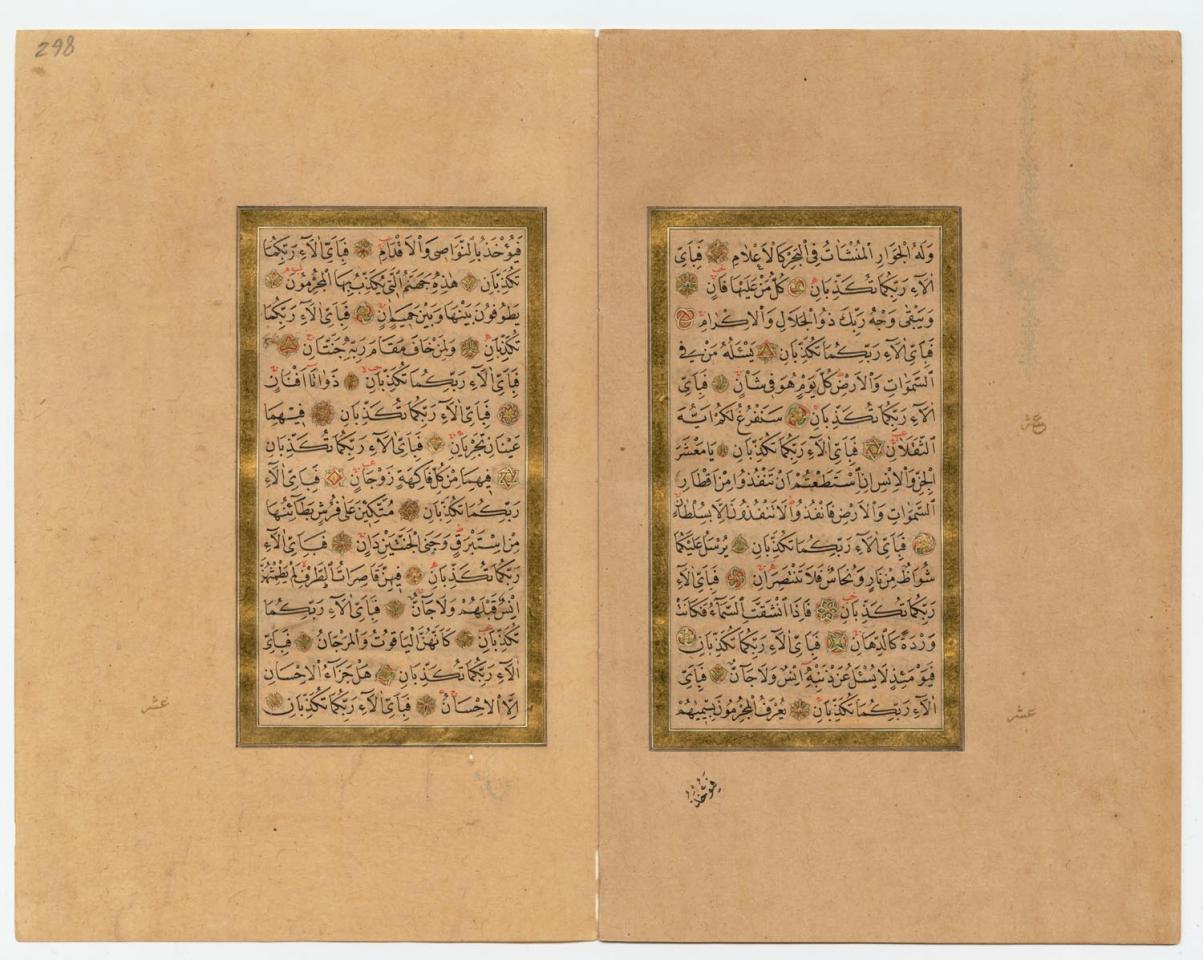 وَلَهُ الْجَوَارِ الْمُنْشَاٰتُ فِي الْبَحْرِ كَالْاَعْلَامِ فَبِاَيِّ
اٰلَاءِ رَبِّكُمَا تُكَذِّبَانِ كُلُّ مَنْ عَلَيْهَا فَانٍ
وَيَبْقٰى وَجْهُ رَبِّكَ ذُو الْجَلَالِ وَالْاِكْرَامِ
فَبِاَيِّ اٰلَاءِ رَبِّكُمَا تُكَذِّبَانِ يَسْئَلُهُ مَنْ فِي
السَّمٰوَاتِ وَالْاَرْضِ كُلَّ يَوْمٍ هُوَ فِي شَاْنٍ فَبِاَيِّ
اٰلَاءِ رَبِّكُمَا تُكَذِّبَانِ سَنَفْرُغُ لَكُمْ اَيُّهَ
الثَّقَلَانِ فَبِاَيِّ اٰلَاءِ رَبِّكُمَا تُكَذِّبَانِ يَا مَعْشَرَ
الْجِنِّ وَالْاِنْسِ اِنِ اسْتَطَعْتُمْ اَنْ تَنْفُذُوا مِنْ اَقْطَارِ
السَّمٰوَاتِ وَالْاَرْضِ فَانْفُذُوا لَا تَنْفُذُونَ اِلَّا بِسُلْطَانٍ
فَبِاَيِّ اٰلَاءِ رَبِّكُمَا تُكَذِّبَانِ يُرْسَلُ عَلَيْكُمَا
شُوَاظٌ مِنْ نَارٍ وَنُحَاسٌ فَلَا تَنْتَصِرَانِ فَبِاَيِّ اٰلَاءِ
رَبِّكُمَا تُكَذِّبَانِ فَاِذَا انْشَقَّتِ السَّمَاءُ فَكَانَتْ
وَرْدَةً كَالدِّهَانِ فَبِاَيِّ اٰلَاءِ رَبِّكُمَا تُكَذِّبَانِ
فَيَوْمَئِذٍ لَا يُسْئَلُ عَنْ ذَنْبِهِ اِنْسٌ وَلَا جَانٌّ فَبِاَيِّ
اٰلَاءِ رَبِّكُمَا تُكَذِّبَانِ يُعْرَفُ الْمُجْرِمُونَ بِسِيمٰيهُمْ
فَيُؤْخَذُ
عشر
عشر
فَيُؤْخَذُ بِالنَّوَاصِي وَالْاَقْدَامِ فَبِاَيِّ اٰلَاءِ رَبِّكُمَا
تُكَذِّبَانِ هٰذِهِ جَهَنَّمُ الَّتِي يُكَذِّبُ بِهَا الْمُجْرِمُونَ
يَطُوفُونَ بَيْنَهَا وَبَيْنَ حَمِيمٍ اٰنٍ فَبِاَيِّ اٰلَاءِ رَبِّكُمَا
تُكَذِّبَانِ وَلِمَنْ خَافَ مَقَامَ رَبِّهِ جَنَّتَانِ
فَبِاَيِّ اٰلَاءِ رَبِّكُمَا تُكَذِّبَانِ ذَوَاتَا اَفْنَانٍ
فَبِاَيِّ اٰلَاءِ رَبِّكُمَا تُكَذِّبَانِ فِيهِمَا
عَيْنَانِ تَجْرِيَانِ فَبِاَيِّ اٰلَاءِ رَبِّكُمَا تُكَذِّبَانِ
فِيهِمَا مِنْ كُلِّ فَاكِهَةٍ زَوْجَانِ فَبِاَيِّ اٰلَاءِ
رَبِّكُمَا تُكَذِّبَانِ مُتَّكِئِينَ عَلٰى فُرُشٍ بَطَائِنُهَا
مِنْ اِسْتَبْرَقٍ وَجَنَى الْجَنَّتَيْنِ دَانٍ فَبِاَيِّ اٰلَاءِ
رَبِّكُمَا تُكَذِّبَانِ فِيهِنَّ قَاصِرَاتُ الطَّرْفِ لَمْ يَطْمِثْهُنَّ
اِنْسٌ قَبْلَهُمْ وَلَا جَانٌّ فَبِاَيِّ اٰلَاءِ رَبِّكُمَا
تُكَذِّبَانِ كَاَنَّهُنَّ الْيَاقُوتُ وَالْمَرْجَانُ فَبِاَيِّ
اٰلَاءِ رَبِّكُمَا تُكَذِّبَانِ هَلْ جَزَاءُ الْاِحْسَانِ
اِلَّا الْاِحْسَانُ فَبِاَيِّ اٰلَاءِ رَبِّكُمَا تُكَذِّبَانِ
عشر
298